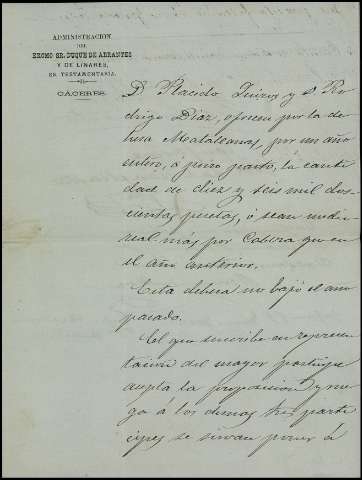 ADMINISTRACION
DEL
EXCMO. SR. DUQUE DE ABRANTES
Y DE LINARES,
EN TESTAMENTARIA.
CÁCERES.
D. Plácido Quirós y D. Ro-
drigo Díaz, ofrecen por la de-
hesa Mataleanas, por un año
entero, á puro pasto, la canti-
dad de diez y seis mil dos-
cientas pesetas, ó sean medio
real más por cabeza que en
el año anterior.
Esta dehesa no bajó el año
pasado.
El que suscribe en represen-
tación del mayor partícipe
acepta la proposición y rue-
ga á los demas tres partí-
cipes se sirvan poner á